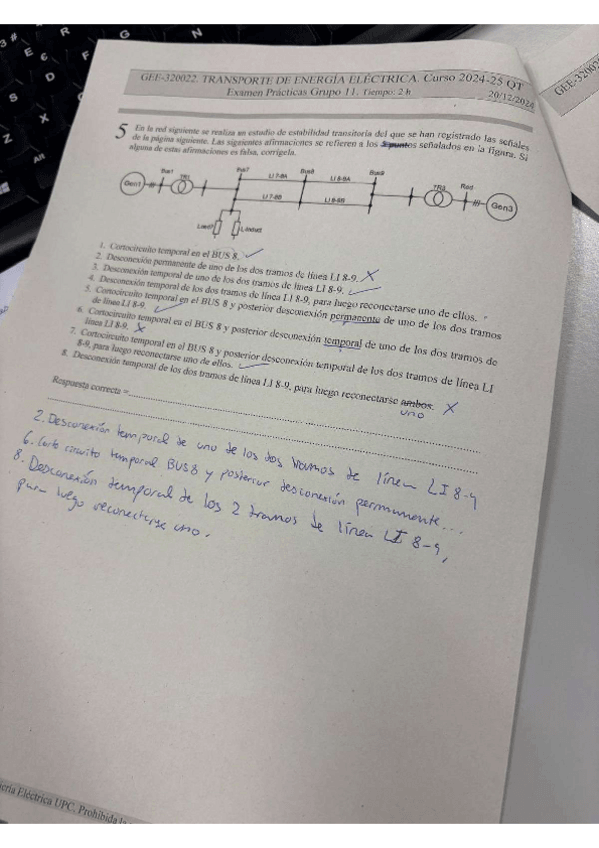 GEE-320022. TRANSPORTE DE ENERGÍA ELÉCTRICA. Curso 2024-25 QT
Examen Prácticas Grupo 11. Tiempo: 2 h
20/12/2024
GEE-32002
5 En la red siguiente se realiza un estudio de estabilidad transitoria del que se han registrado las señales
de la página siguiente. Las siguientes afirmaciones se refieren a los 5 puntos señalados en la figura. Si
alguna de estas afirmaciones es falsa, corrígela.
Bus7 Bus8 Bus9
Gen1 TR1 LI 7-8A LI 8-9A TR3 Red Gen3
LI 7-8B LI 8-9B
1. Cortocircuito temporal en el BUS 8.
2. Desconexión permanente de uno de los dos tramos de línea LI 8-9. X
3. Desconexión temporal de uno de los dos tramos de línea LI 8-9.
4. Desconexión temporal de los dos tramos de línea LI 8-9, para luego reconectarse uno de ellos.
5. Cortocircuito temporal en el BUS 8 y posterior desconexión permanente de uno de los dos tramos
de línea LI 8-9.
6. Cortocircuito temporal en el BUS 8 y posterior desconexión temporal de uno de los dos tramos de
línea LI 8-9. X
7. Cortocircuito temporal en el BUS 8 y posterior desconexión temporal de los dos tramos de línea LI
8-9, para luego reconectarse uno de ellos.
8. Desconexión temporal de los dos tramos de línea LI 8-9, para luego reconectarse ambos. X
uno
Respuesta correcta =
2. Desconexión temporal de uno de los dos tramos de línea LI 8-9
6. Corto circuito temporal BUS 8 y posterior desconexión permanente...
8. Desconexión temporal de los 2 tramos de línea LI 8-9,
para luego reconectarse uno.
ería Eléctrica UPC. Prohibida la